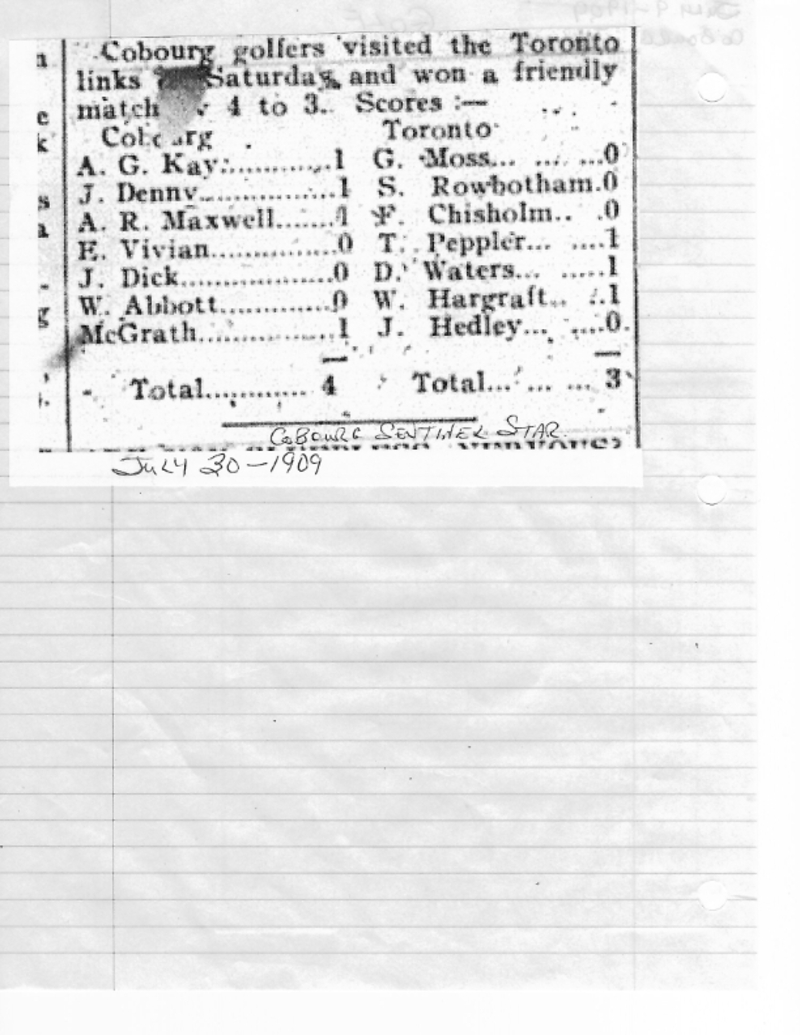 Cobourg golfers visited the Toronto
links Saturday, and won a friendly
match 4 to 3. Scores :—
Cobourg Toronto
A. G. Kay.............1 G. Moss... .... ...0
J. Denny...............1 S. Rowbotham.0
A. R. Maxwell.......1 F. Chisholm.. .0
E. Vivian..............0 T. Peppler... ....1
J. Dick.................0 D. Waters... .....1
W. Abbott.............0 W. Hargraft.. ..1
McGrath...............1 J. Hedley... ....0.
Total............ 4 Total... ... ... 3
COBOURG SENTINEL STAR.
NERVOUS?
JULY 30-1909